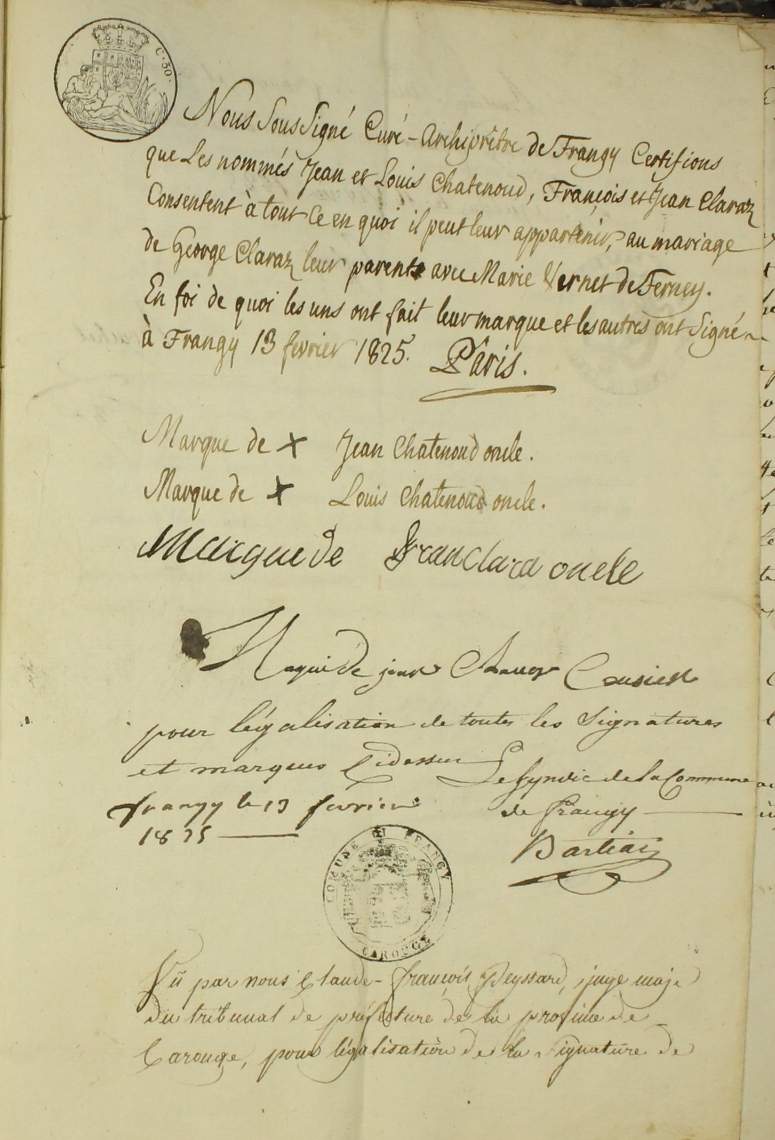 C. 50.
Nous Sous Signé Curé-Archiprêtre de Frangy Certifions
que Les nommés Jean et Louis Chatenoud, François et Jean Claraz
Consentent à tout Ce en quoi il peut leur appartenir, au mariage
de George Claraz leur parent avec Marie Vernet de Ferney.
En foi de quoi les uns ont fait leur marque et les autres ont Signé
à Frangy 13 fevrier 1825. Pâris.
Marque de X Jean Chatenoud oncle.
Marque de X Louis Chatenoud oncle.
Marque de oncle
de Cousien
pour légalisation de toutes les Signatures
et marques Cidessus Le Syndic de la Commune
frangy le 13 février de frangy
1825
COMUNE DI FRANGY
CAROUGE
Vû par nous Claude-françois Peyssard, juge maje
du tribunal de préfecture de la province de
Carouge, pour légalisation de la Signature de